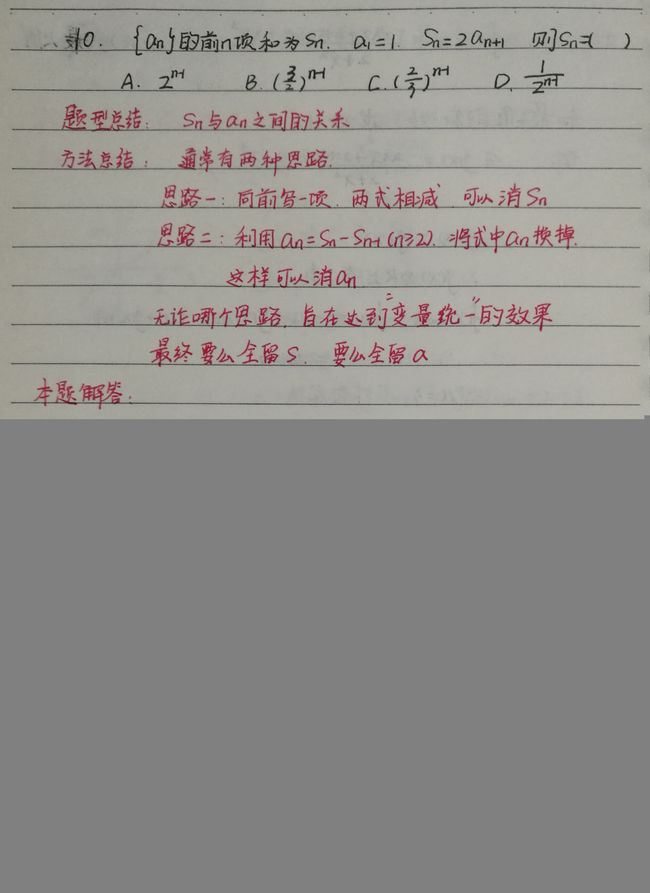 10. {an}的前n项和为Sn. a1=1. Sn=2an+1 则Sn=( )
A. 2^(n-1) B. (3/2)^(n-1) C. (2/3)^(n-1) D. 1/2^(n-1)
题型总结: Sn与an之间的关系
方法总结: 通常有两种思路.
思路一: 向前写一项. 两式相减 可以消Sn
思路二: 利用an=Sn-Sn-1(n≥2). 将式中an换掉.
这样可以消an
无论哪个思路, 旨在达到"变量统一"的效果
最终要么全留S. 要么全留a
本题解答: